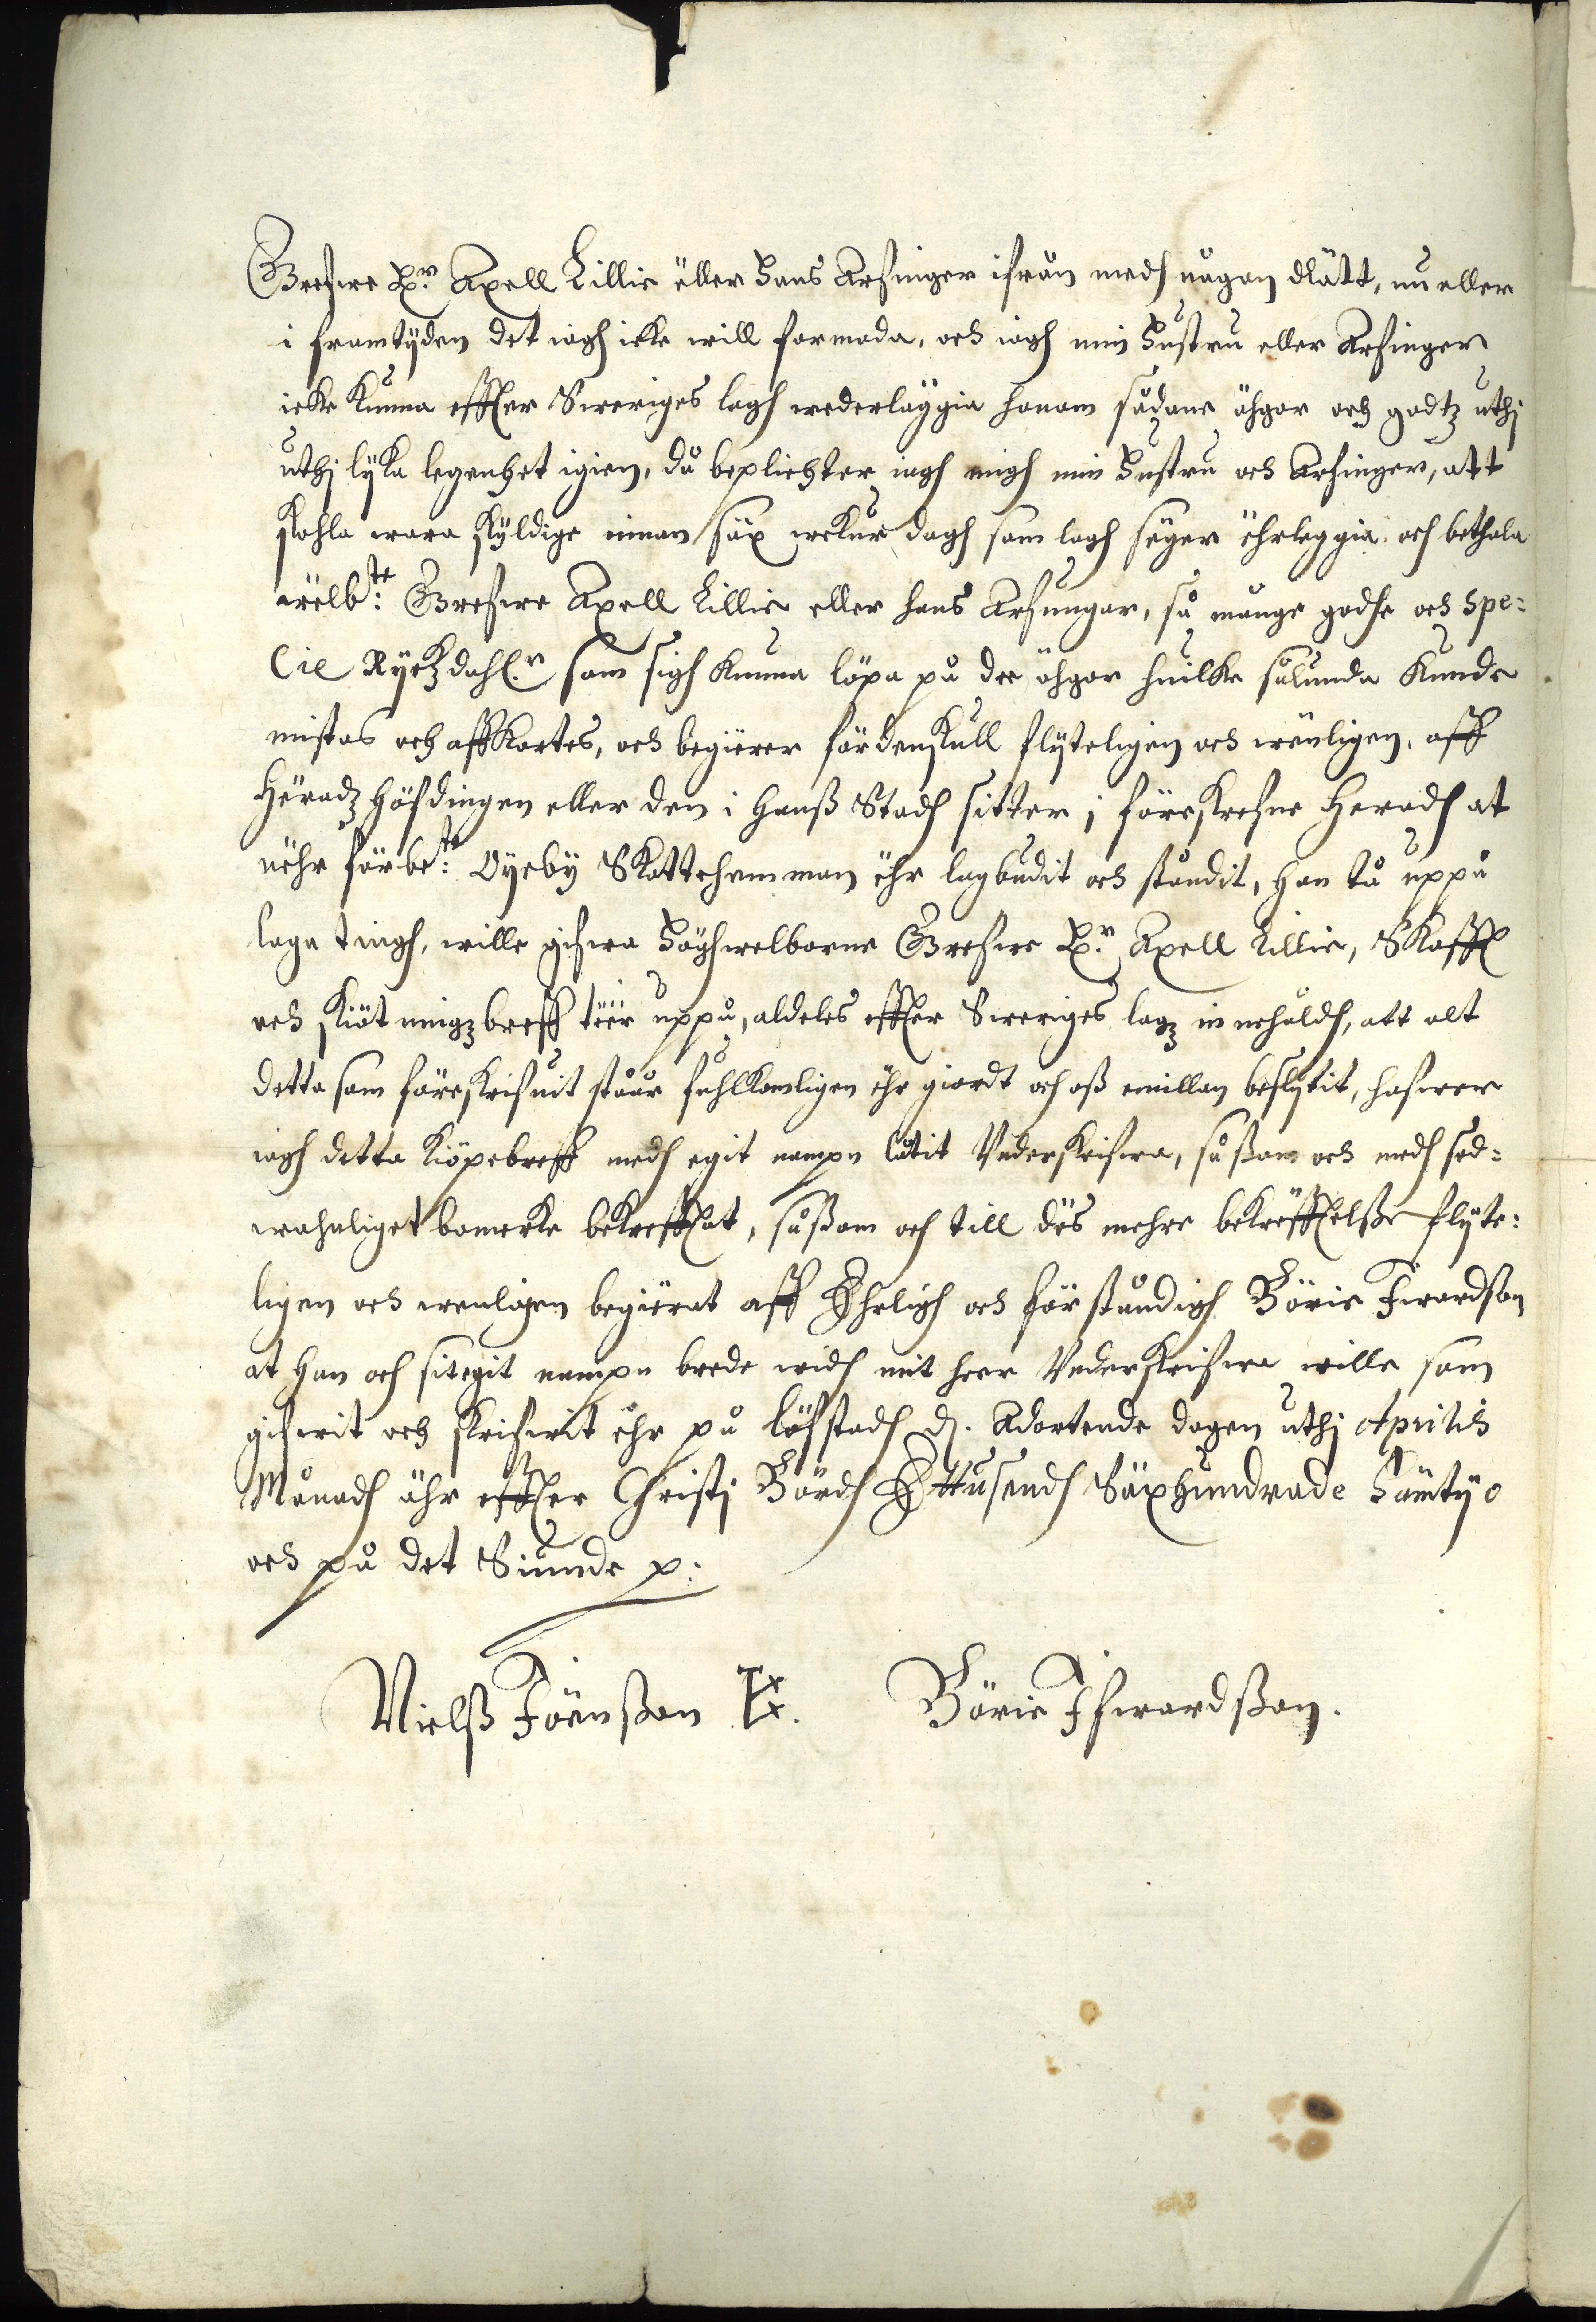 Grefwe H:r Axell Lillie äller Hans Arfinger ifrån medh någon dlätt, nu eller
i framtÿden det iagh icke will formoda, och iagh min Hustru eller Arfinger
icke kunna effter Sweriges lagh wederläggia honom sådane ähgor och godtz uthj
uthj lÿka legenhet igien, då beplichter iagh migh min Hustru och Arfinger, att
skohla wara skÿldige innan säx wekur dagh som lagh säger ährleggia och bethala
wëlb:te Grefwe Axell Lillie eller hans Arfungar, så mange godhe och Spe=
Cie Rÿckzdahl:r som sigh kunna löpa på de ähgor huilke sålunda kunde
mistas och affkortes, och begiërer fördenskull flÿteligen och wënligen, aff
Häradz Höfdingen eller den i Hanß Stadh sitter j föreskrefne Heradh at
nëhr förbe:te Oÿebÿ Skattehemman ähr lagbudit och ståndit, Han tå uppå
laga tingh, wille gifwa Höghwelborne Grefwe H:r Axell Lillie, Skafft
och skiöt ningzbreff tëër uppå, aldeles effter Sweriges lagz inneholdh, att alt
detta som föreskrifuit ståår fuhlkomligen ähr giordt och oß emillan beslutit, hafwer
iagh detta kiöpebreff medh egit nampn låtit Underskrifwa, såßom och medh sed=
wahnliget bomerke bekrefftat, såßom och till dës mehre bekräfftelße flÿte=
ligen och wenligen begiërat aff Ehrligh och förståndigh Börie Iwardson
at Han och sit egit nampn brede widh mit heer Underskrifwa wille som
gifwit och skrifwit ähr på löfstadh d. Adortende dagen uthj Aprilis
Månadh åhr effter Christj Bördh Ettusendh Säxhundrade Fämtÿo
och på det Siunde p:
Nielß Jöënßon Börie Ifwardßon.